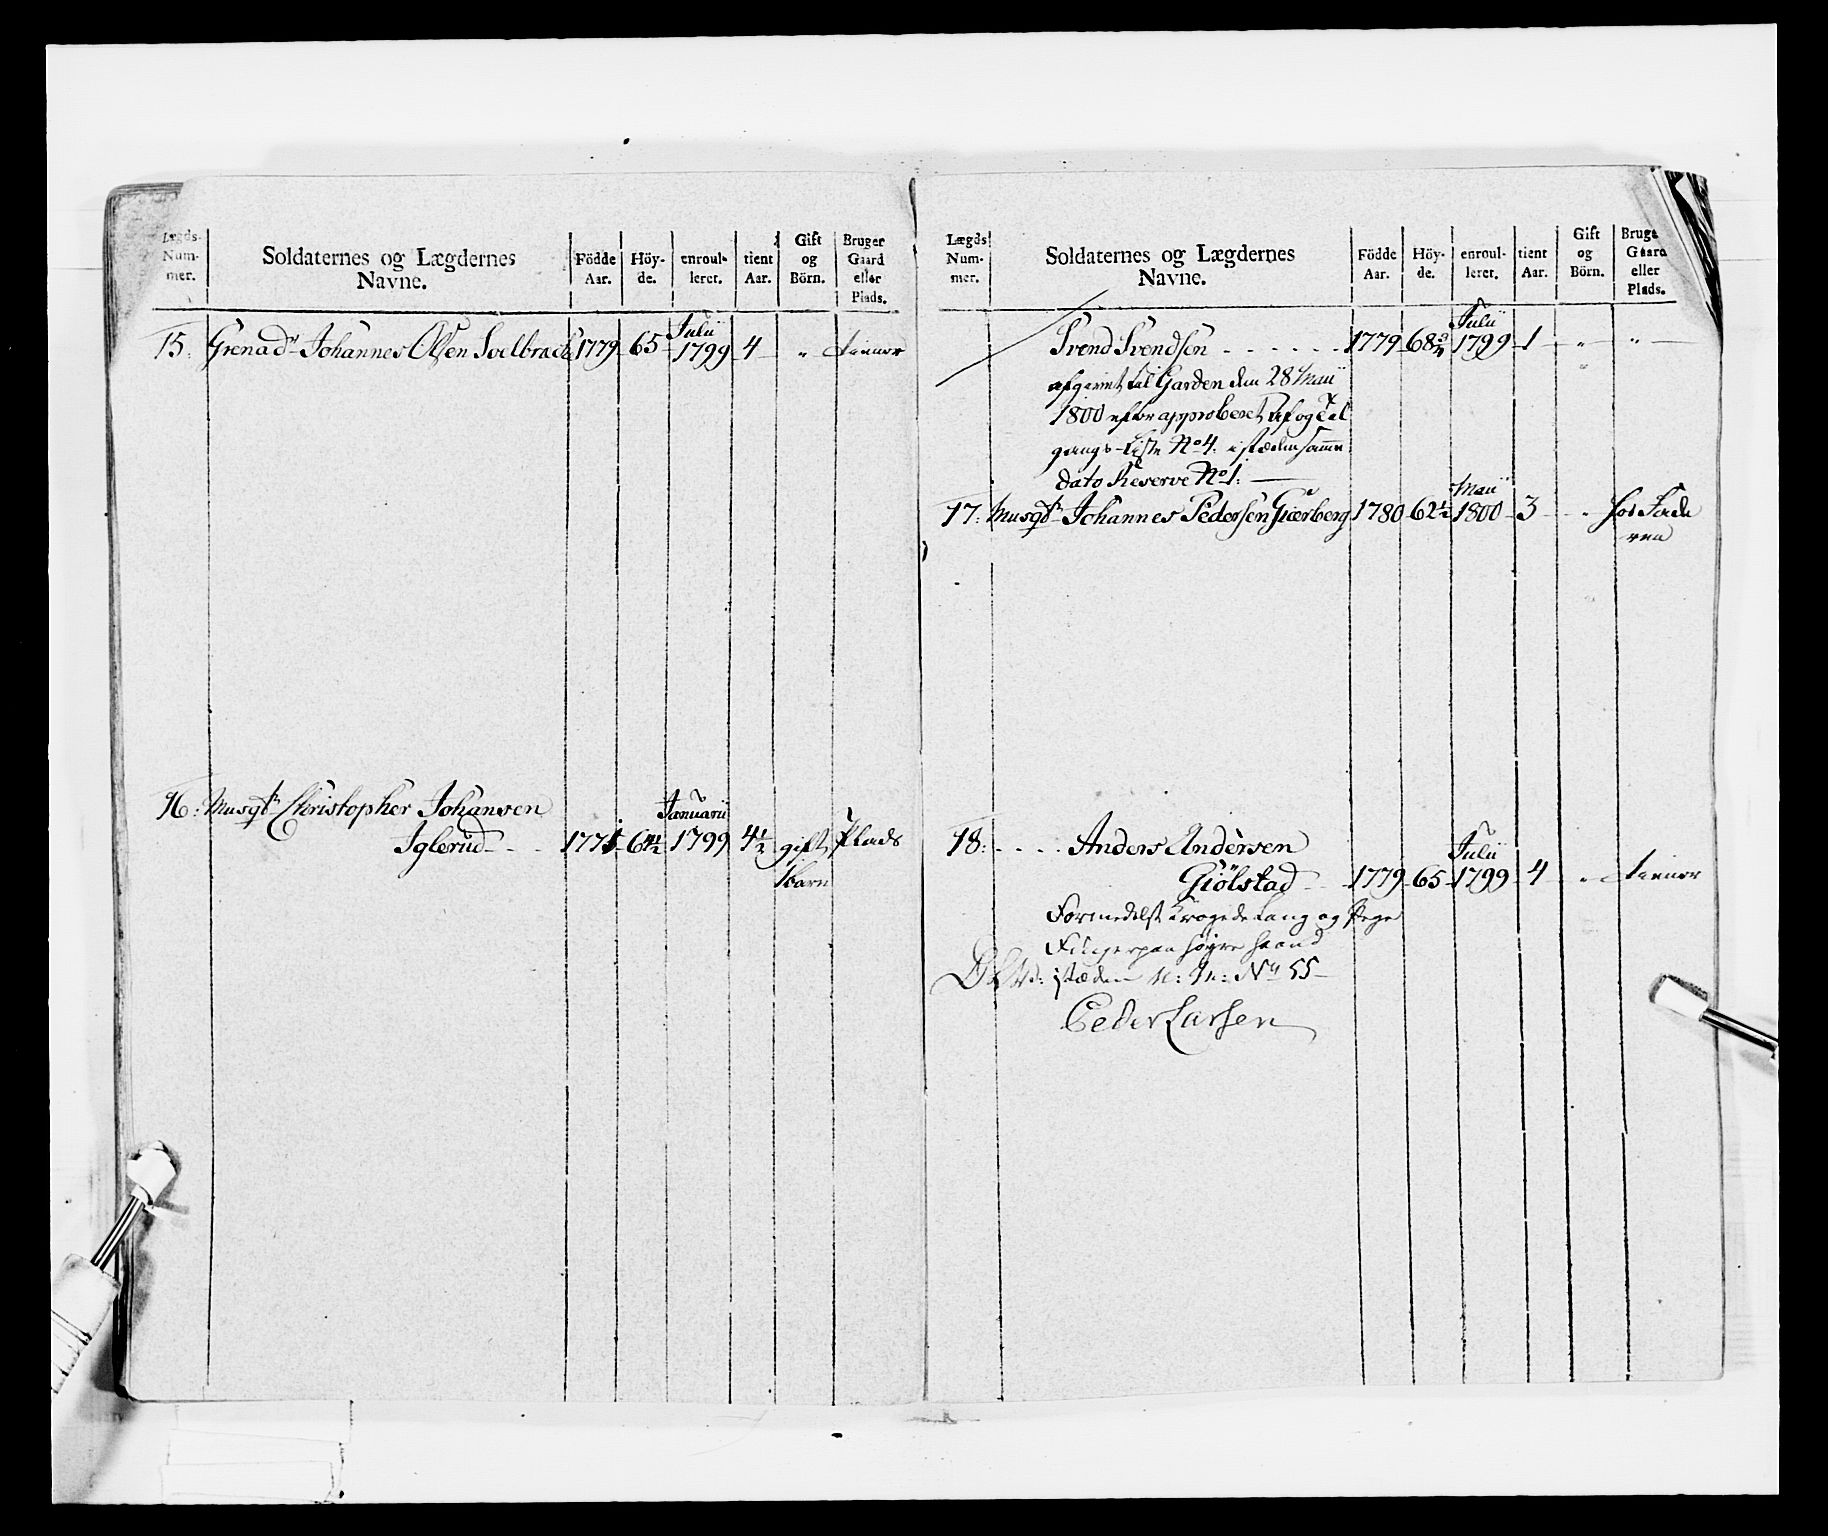 Lægds- Num- mer.
Soldaternes og Lægdernes Navne.
Födde Aar.
Höy- de.
enroul- leret.
tient Aar.
Gift og Börn.
Bruger Gaard eller Plads.
15. Grenadr Johannes Olsen Solbrack 1779 65 Julii 1799 4 " tienner
16: Musqtr Christopher Johansen
Iglerud - - 1775 64½ Januarii 1799 4½ gift Plads
1 barn
Lægds Num- mer.
Soldaternes og Lægdernes Navne.
Födde Aar.
Höy- de.
enroul- leret.
tient Aar.
Gift og Börn.
Bruge Gaard eller Plads.
Svend Svendsen - - - - - - 1779 68 Julii 1799 1 " "
afgaaet til Garden den 28 Maii
1800 efter approberet Af og Til
gangs-Liste No 4: istæden samme
dato Reserve No 1:
17: Musqtr Johannes Pedersen Giærberg 1780 62½ Maii 1800 3 " hos Fade
ren
18: - - - - Anders Andersen
Giölstad - - 1779 65 Julii 1799 4 " tienner
Formedelst Krogede Lang og Pege
Finger paa höyre Haand
istæden No 55
Peder Larsen